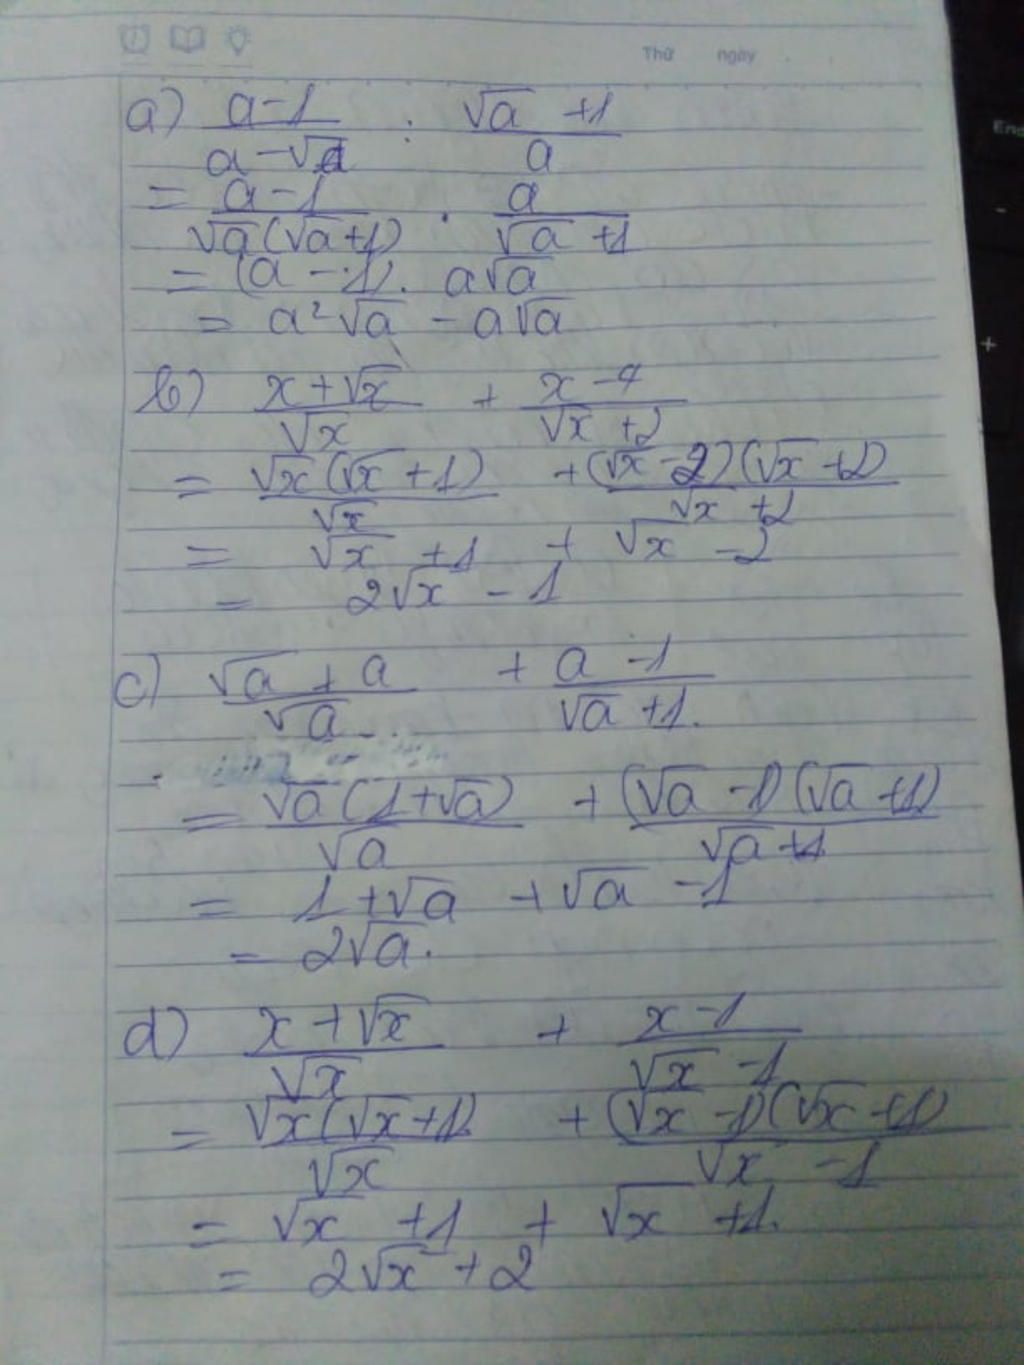 Thứ ngày
a) \frac{a-1}{a-\sqrt{a}} : \frac{\sqrt{a}+1}{a}
= \frac{a-1}{\sqrt{a}(\sqrt{a}+1)} . \frac{a}{\sqrt{a}+1}
= (a-1). a\sqrt{a}
= a²\sqrt{a} - a\sqrt{a}
b) \frac{x+\sqrt{x}}{\sqrt{x}} + \frac{x-4}{\sqrt{x}+2}
= \frac{\sqrt{x}(\sqrt{x}+1)}{\sqrt{x}} + \frac{(\sqrt{x}-2)(\sqrt{x}+2)}{\sqrt{x}+2}
= \sqrt{x}+1 + \sqrt{x}-2
= 2\sqrt{x}-1
c) \frac{\sqrt{a}+a}{\sqrt{a}} + \frac{a-1}{\sqrt{a}+1}.
= \frac{\sqrt{a}(1+\sqrt{a})}{\sqrt{a}} + \frac{(\sqrt{a}-1)(\sqrt{a}+1)}{\sqrt{a}+1}
= 1+\sqrt{a} + \sqrt{a}-1
= 2\sqrt{a}.
d) \frac{x+\sqrt{x}}{\sqrt{x}} + \frac{x-1}{\sqrt{x}-1}
= \frac{\sqrt{x}(\sqrt{x}+1)}{\sqrt{x}} + \frac{(\sqrt{x}-1)(\sqrt{x}+1)}{\sqrt{x}-1}
= \sqrt{x}+1 + \sqrt{x}+1.
= 2\sqrt{x}+2